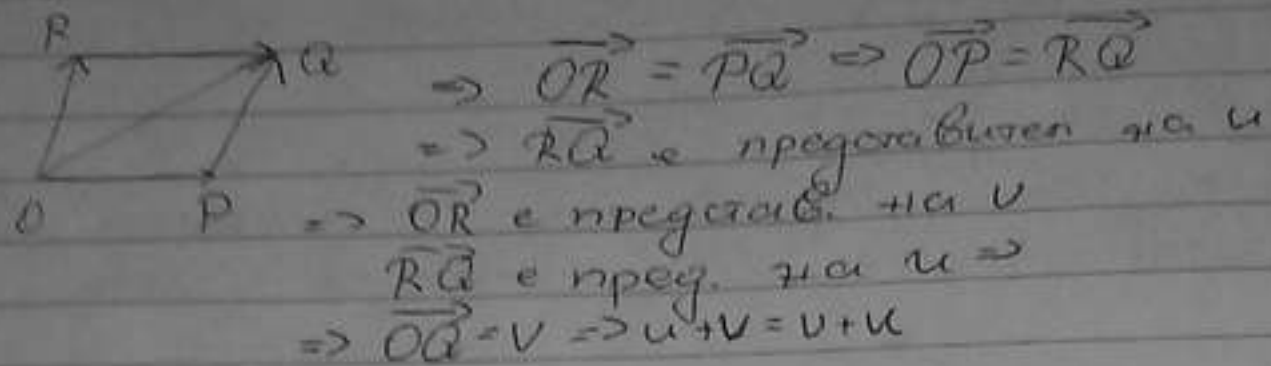 R Q
⇒ \overrightarrow{OR} = \overrightarrow{PQ} ⇒ \overrightarrow{OP} = \overrightarrow{RQ}
=> \overrightarrow{RQ} е представител на u
O P => \overrightarrow{OR} е представ. на v
\overrightarrow{RQ} е пред. на u =>
=> \overrightarrow{OQ} = v => u+v = v+u